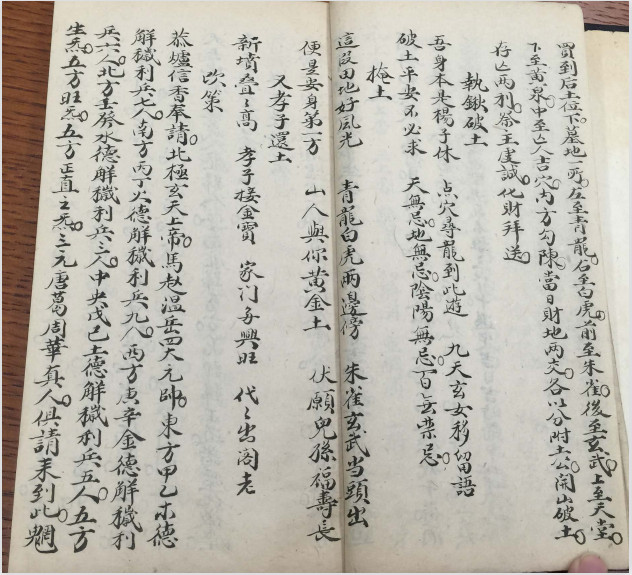 買到后土位下墓地一所左至青龍右至白虎前至朱雀後至玄武上至天堂
下至黃泉中至亡人吉穴內方勾陳當日財地兩交各以分附土公開山破土
存亡兩利祭主虔誠化財拜送
執鍬破土
吾身本是楊子休 点穴尋龍到此遊 九天玄女移留語
破土平安不必求 天無忌地無忌陰陽無忌百無禁忌
掩土
這段田地好風光 青龍白虎兩邊傍 朱雀玄武当頭出
便是安身第一方 山人與你黃金土 伏願兒孫福壽長
又孝子還土
新墳疊〻高 孝子接金寶 家门多興旺 代〻出阁老
次策
恭爐信香奉請北極玄天上帝馬赵温岳四大元帥東方甲乙木德
解穢利兵七人南方丙丁火德解穢利兵九人西方庚辛金德解穢利
兵六人北方壬癸水德解穢利兵三人中央戊己土德解穢利兵五人五方
生炁五方旺炁五方正直之炁三元唐葛周華真人俱請来到此